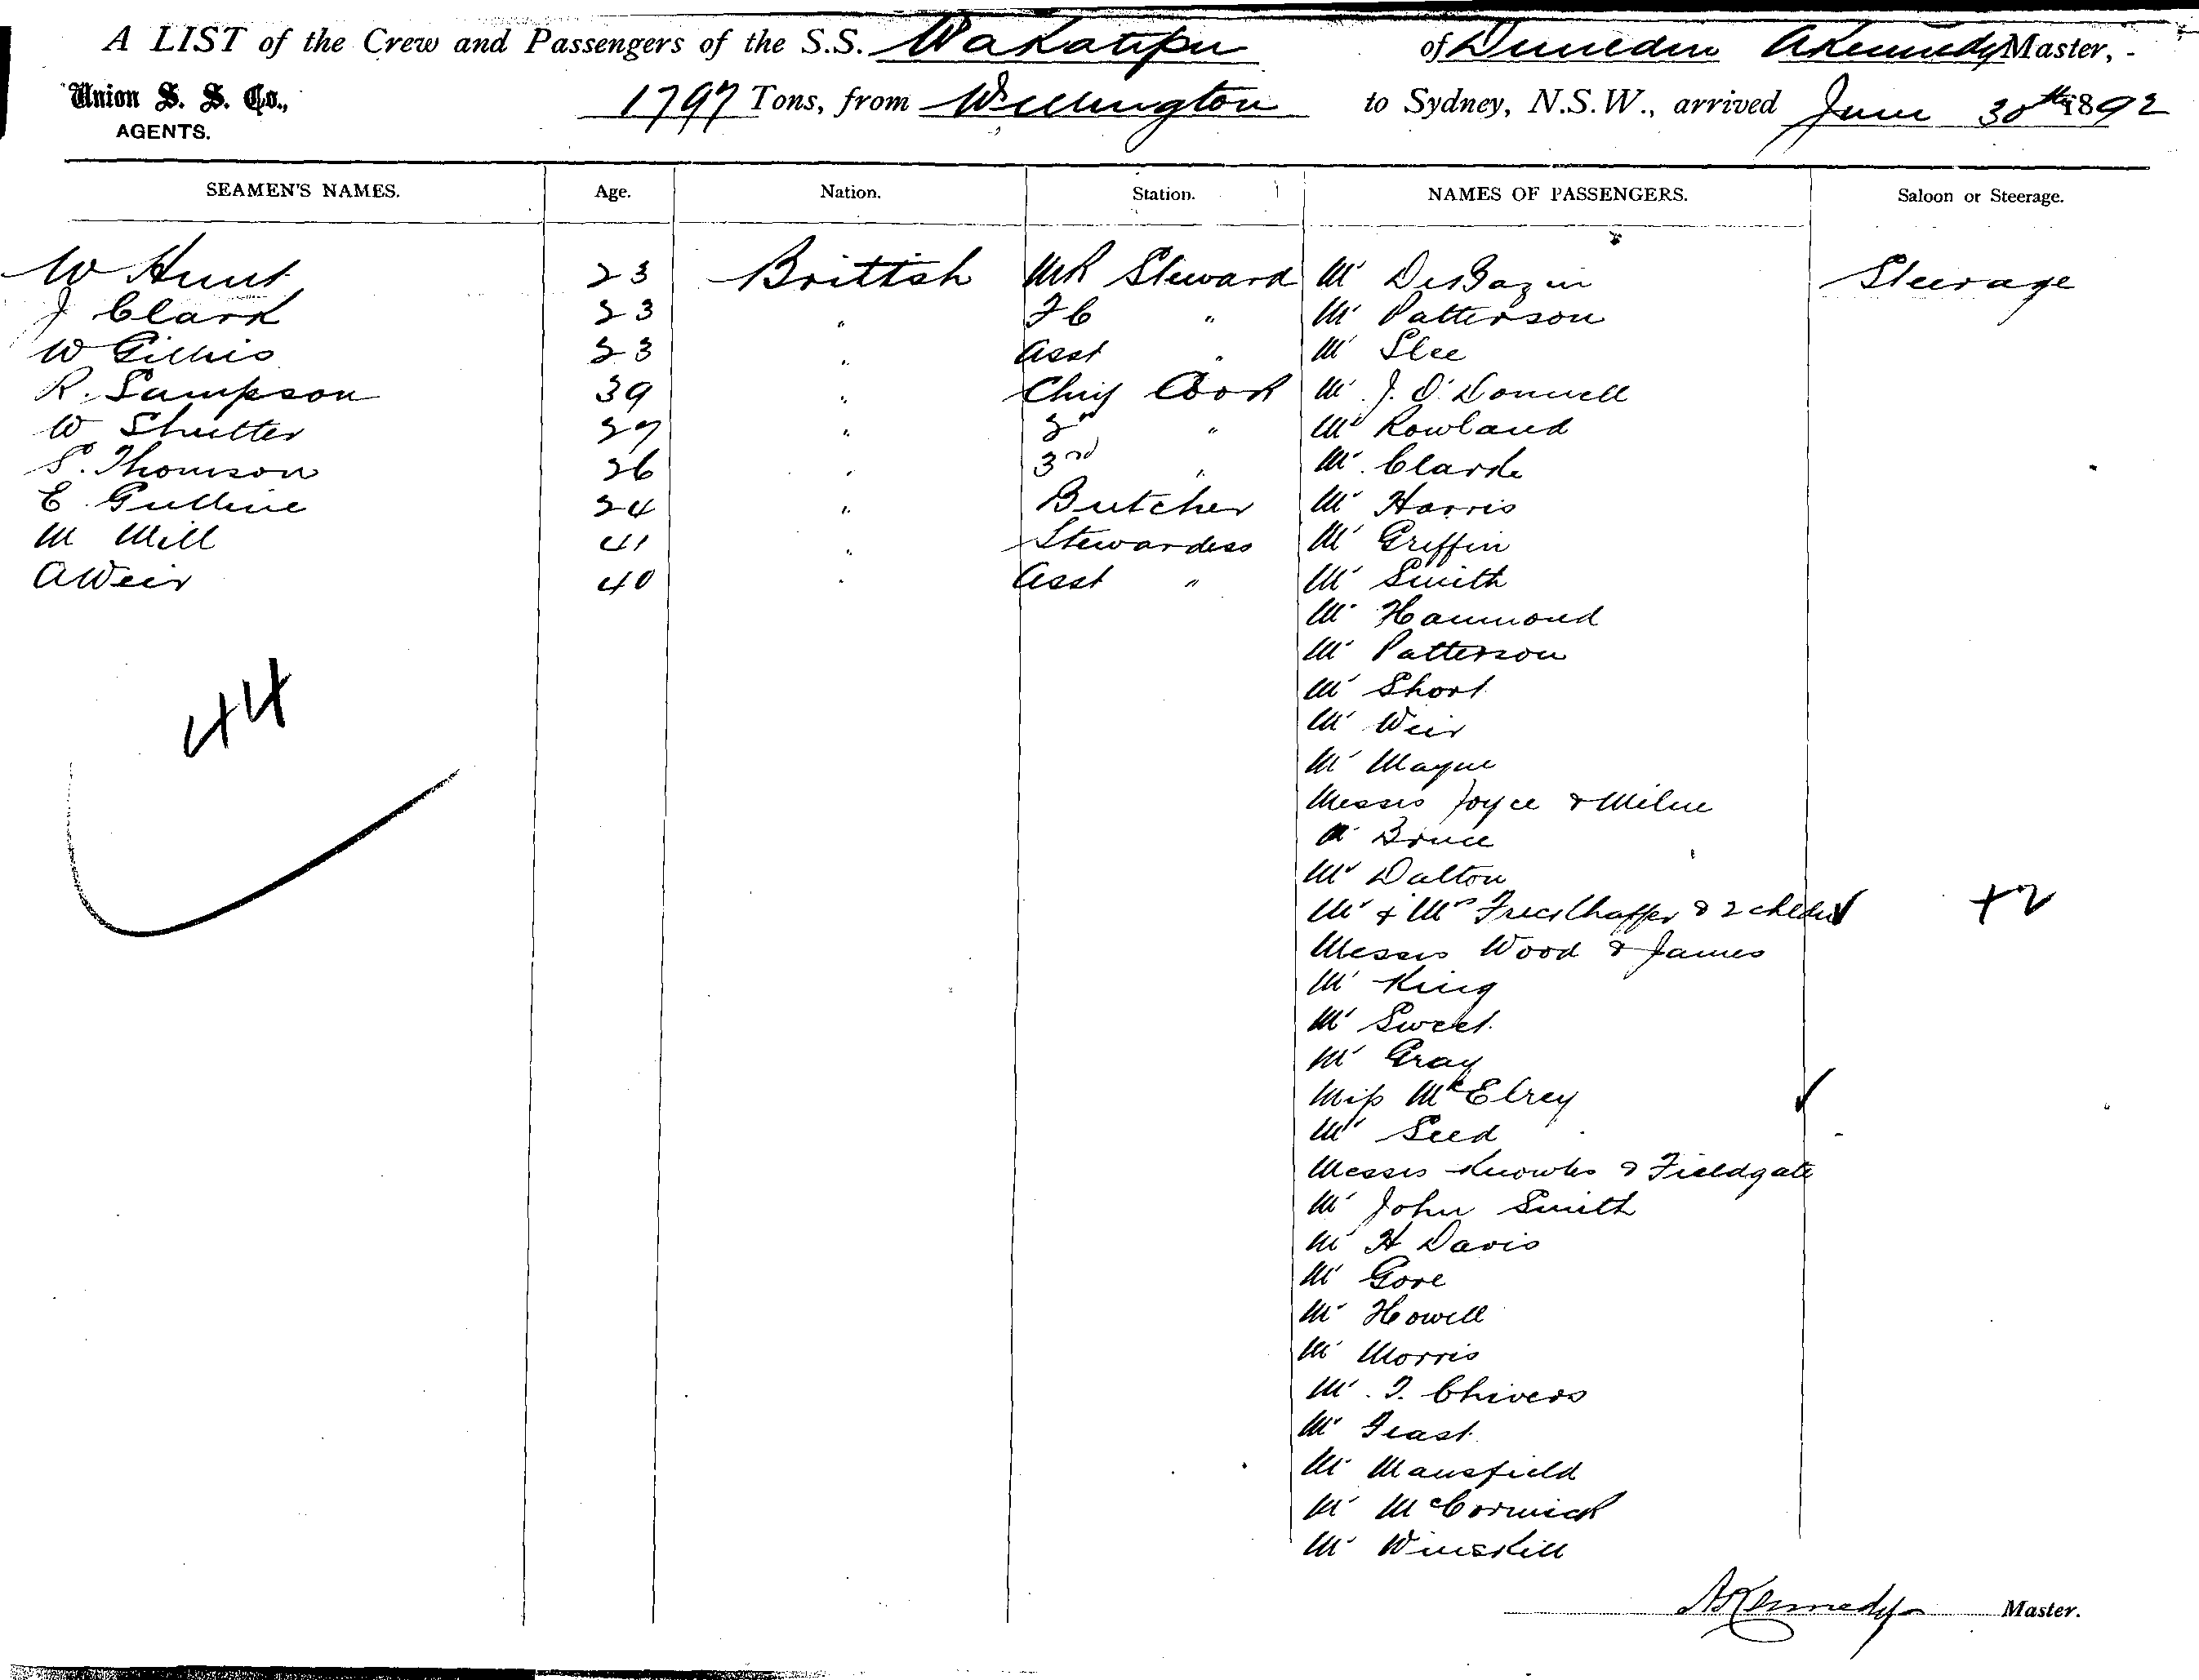 A LIST of the Crew and Passengers of the S.S. Wakatipu of Dunedin A Kennedy Master,
Union S. S. Co., 1797 Tons, from Wellington to Sydney, N.S.W., arrived June 30th 1892
AGENTS.
SEAMEN'S NAMES. Age. Nation. Station. NAMES OF PASSENGERS. Saloon or Steerage.
W Hunt 23 Brittish MR Steward Mr Steerage
J Clark 23 " FC " Mr Patterson
W Gillies 23 " Asst " Mr Slee
R. Sampson 39 " Chief Cook Mr J. O'Donnell
W Shutter 27 " 2nd " Mr Rowland
S. Thomson 26 " 3rd " Mr Clarke
E Gulline 24 " Butcher Mr Harris
M Mill 41 " Stewardess Mr Griffin
A Weir 40 " Asst " Mr Smith
Mr Hammond
Mr Patterson
Mr Short
Mr Weir
Mr Mayne
Messrs Joyce & Milne
Mr Bruce
Mr Dalton
Mr & Mrs & 2 children +2
Messrs Wood & James
Mr King
Mr Sweet
Mr Gray
Miss McElrey
Mr Seed
Messrs Knowles & Fieldgate
Mr John Smith
Mr H Davis
Mr Gore
Mr Howell
Mr Morris
Mr T. Chivers
Mr Feast
Mr Mansfield
Mr McCormick
Mr Winskill
44
A Kennedy Master.